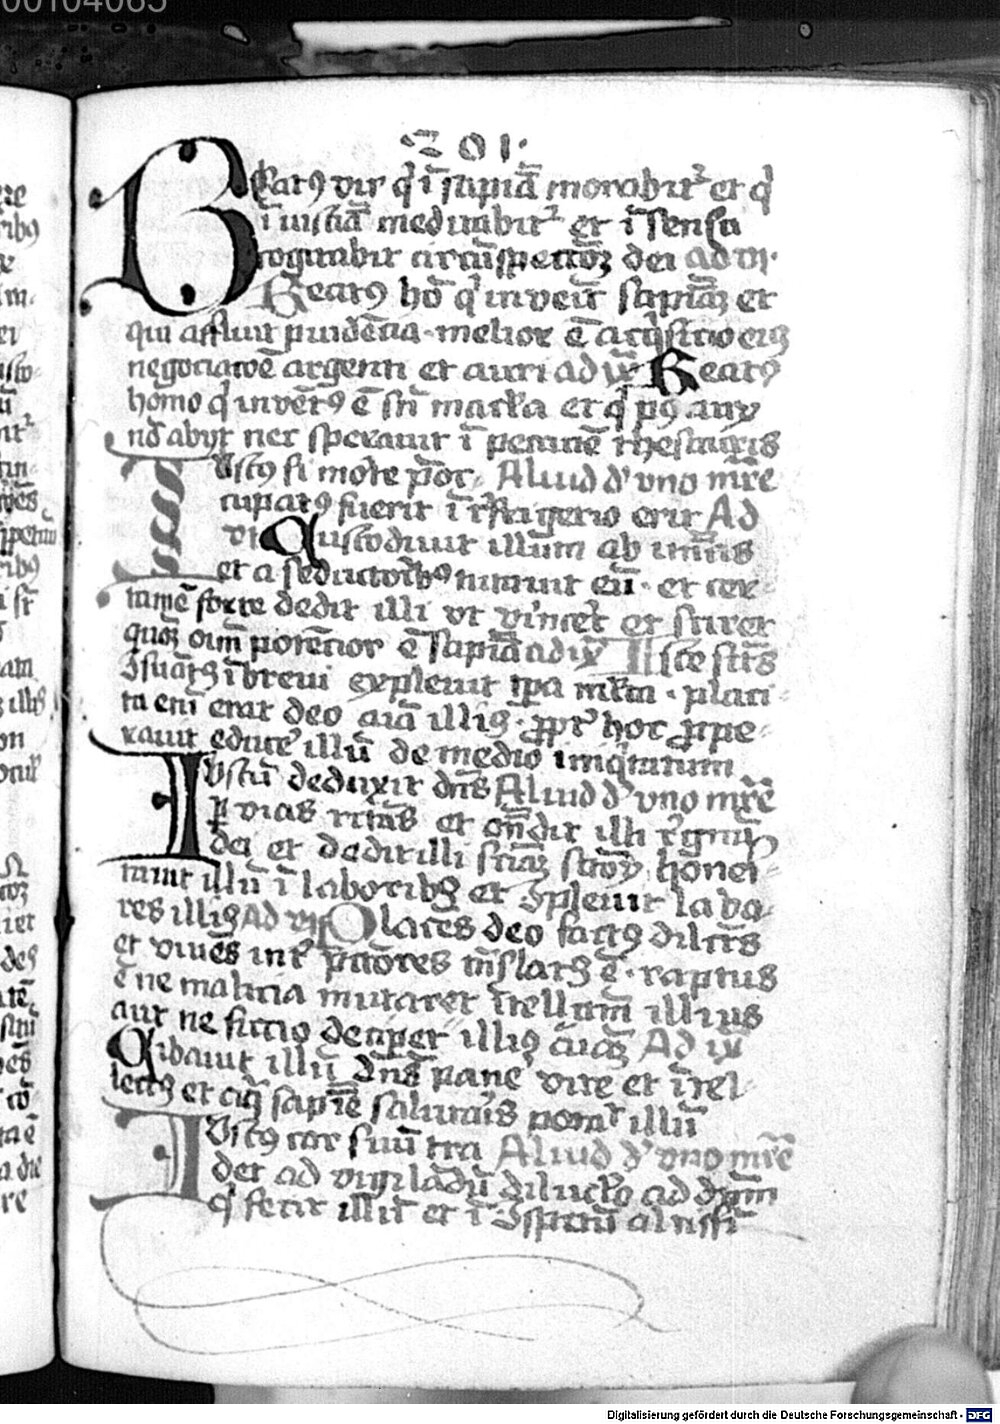 00104065
201·
Beatꝯ vir q̇ ī sapīa morabit᷑ et q̇
ī iusticīa meditabit᷑ et ī sensu
cogitabit circūspectōꝫ dei Ad vi·
Beatꝯ hō q̇ inveīt sapiaꝫ et
qui affluit prudēcia· melior ē acq̇sitio eiꝰ
negociatōē argenti et auri ad ix Beatꝯ
homo q̇ invētꝯ ē sn̄ macl̄a et q̇ pꝰ auꝝ
nō abijt nec speravit ī peccunie thesauris
Iustꝯ si morte p̄oc· Aliud d' vno mr̄e
cupatꝯ fuerit ī r̄frigerio erit Ad
vi Custodivit illum ab inimis
et a seductoībꝯ tutavit eū· et cer
tamē forte dedit illi vt vīncet et sciret
quoꝫ oīm potēcior ē sapīa ad ix Iste sct̄s
9suātꝯ ī brevi explevit tp̄a ml̄ta· placi
ta enī erat deo aīa illiꝰ· ꝓpt' hoc ꝓpe
ravit educe' illū de medio iniq̇tatum
Iustū deduxit dn̄s Aliud d' vno mr̄e
ꝑ vias rectas et on̄dit illi r̄gnū
dei et dedit illi sciaꝫ sctōꝝ hones
tavit illū ī laboribꝯ et 9plevit labo
res illiꝰ Ad vi Placēs deo factꝯ dilcūs
et vivēs int' pctōres trāslatꝯ ē· raptus
ē ne malicia mutaret ītellcm̄ illius
aut ne fictio decip̄et illiꝰ aīaꝫ Ad ix
Cibavit illū dn̄s pane vite et ītel
lectꝯ et aq̇ sapīe salutaīs potavit illū
Iustꝯ cor suū tra Aliud d' vno mr̄e
det ad vigilādū dilucl̄o ad dn̄m
q̇ fecit illū et ī 9spectū altissi
Digitalisierung gefördert durch die Deutsche Forschungsgemeinschaft - DFG